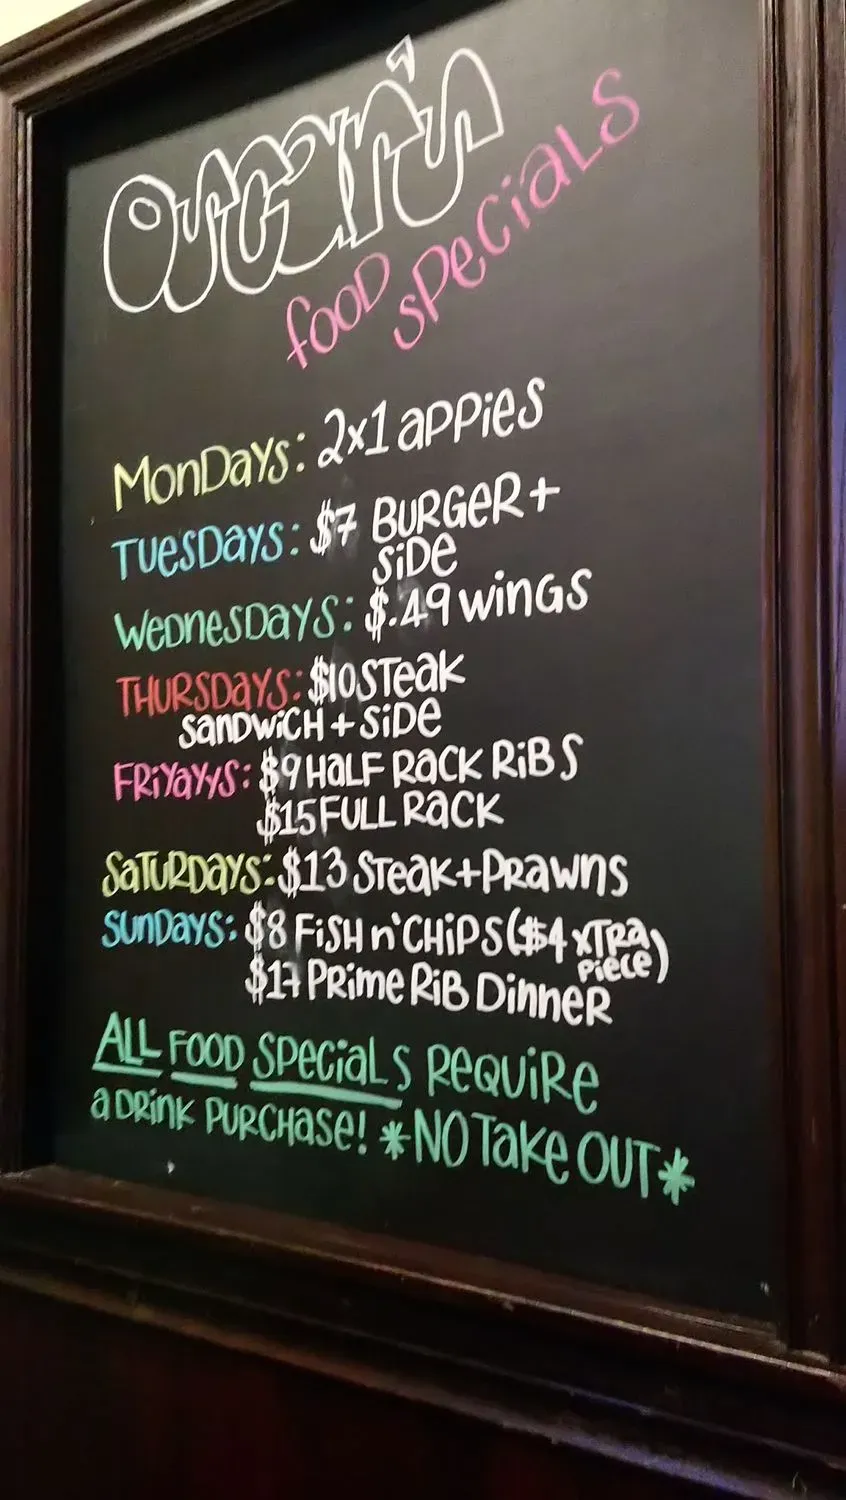 Oscar's
food specials
Mondays: 2x1 appies
Tuesdays: $7 Burger +
side
Wednesdays: $.49 wings
Thursdays: $10 Steak
Sandwich + Side
Friyayys: $9 Half Rack Ribs
$15 Full Rack
Saturdays: $13 Steak + Prawns
Sundays: $8 Fish n' Chips ($4 xtra
piece)
$17 Prime Rib Dinner
All Food Specials Require
a Drink Purchase! *No Take Out*